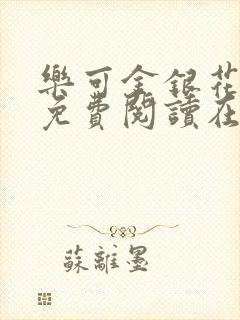 樂可金銀花
免費閱讀在
蘇離墨